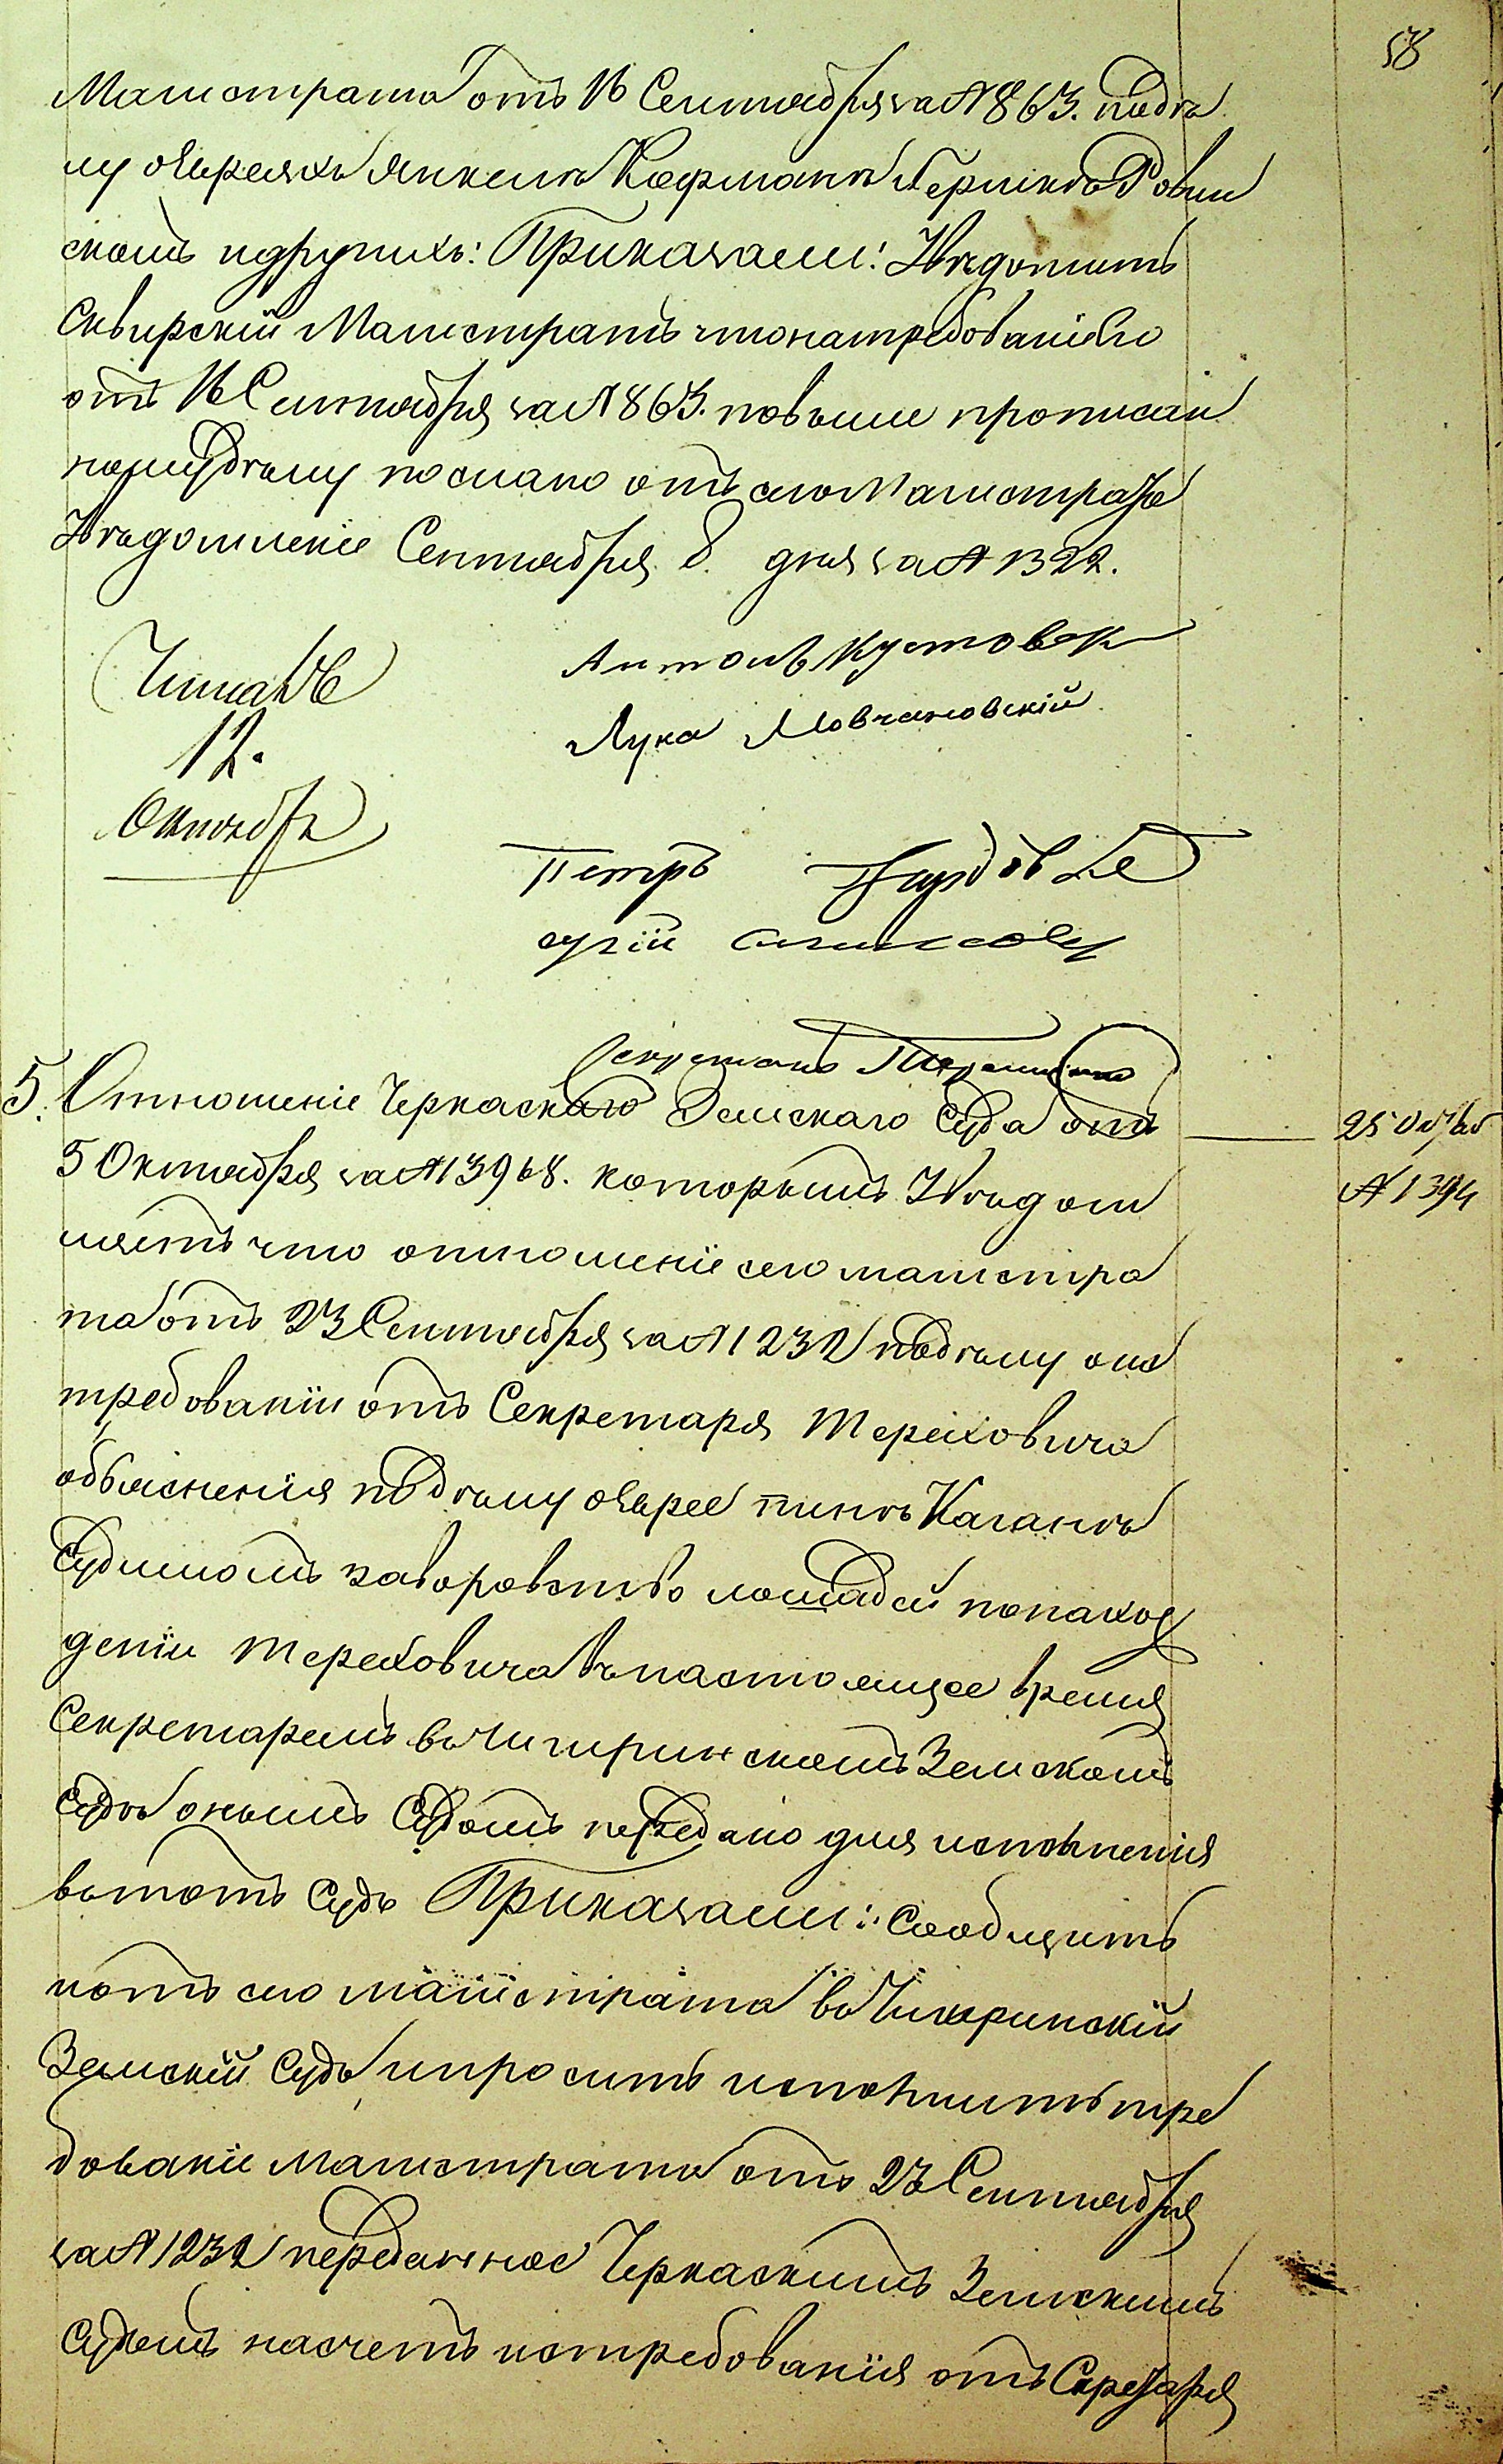 58
Магистрата отъ 16 Сентября за № 863. подѣ
лу оЕвреяхъ Янкелѣ Кофманѣ Гершкѣ Ровин
скомъ идругихъ: Приказали: Увѣдомить
Сквирскій Магистратъ что на требованіе Его
отъ 16 Сентября за № 863. повыше прописан
ному дѣлу послано отъ сего Магистрата
Увѣдомленіе Сентября 8 дня за № 1322.
Читалъ
12.
Октября
Антонъ Кустовск
Лука Мовчановскій
Петръ
Секретарь
5. Отношеніе Черкаскаго Земскаго Суда отъ
5 Октября за № 13968. которымъ Увѣдом
ляетъ что отношеніе сего магистра
та отъ 23 Сентября за № 1232 подѣлу она
требованіи отъ Секретаря Тереховича
объясненія подѣлу оЕврее Пинѣ Каганѣ
Судимомъ заворовство лошадей понахож
деніи Тереховича внастоящее время
Секретаремъ въ Чигиринскомъ Земскомъ
Судѣ онымъ Судомъ передано для исполненія
втотъ Судъ Приказали: Сообщить
иотъ сего магистрата въ Чигиринскій
Земскій Судъ ипросить исполнить тре
бованіе Магистрата отъ 23 Сентября
за № 1232 переданное Черкаскимъ Земскимъ
Судомъ насчетъ истребованія отъ Скретаря
25 Октяб
№ 1394